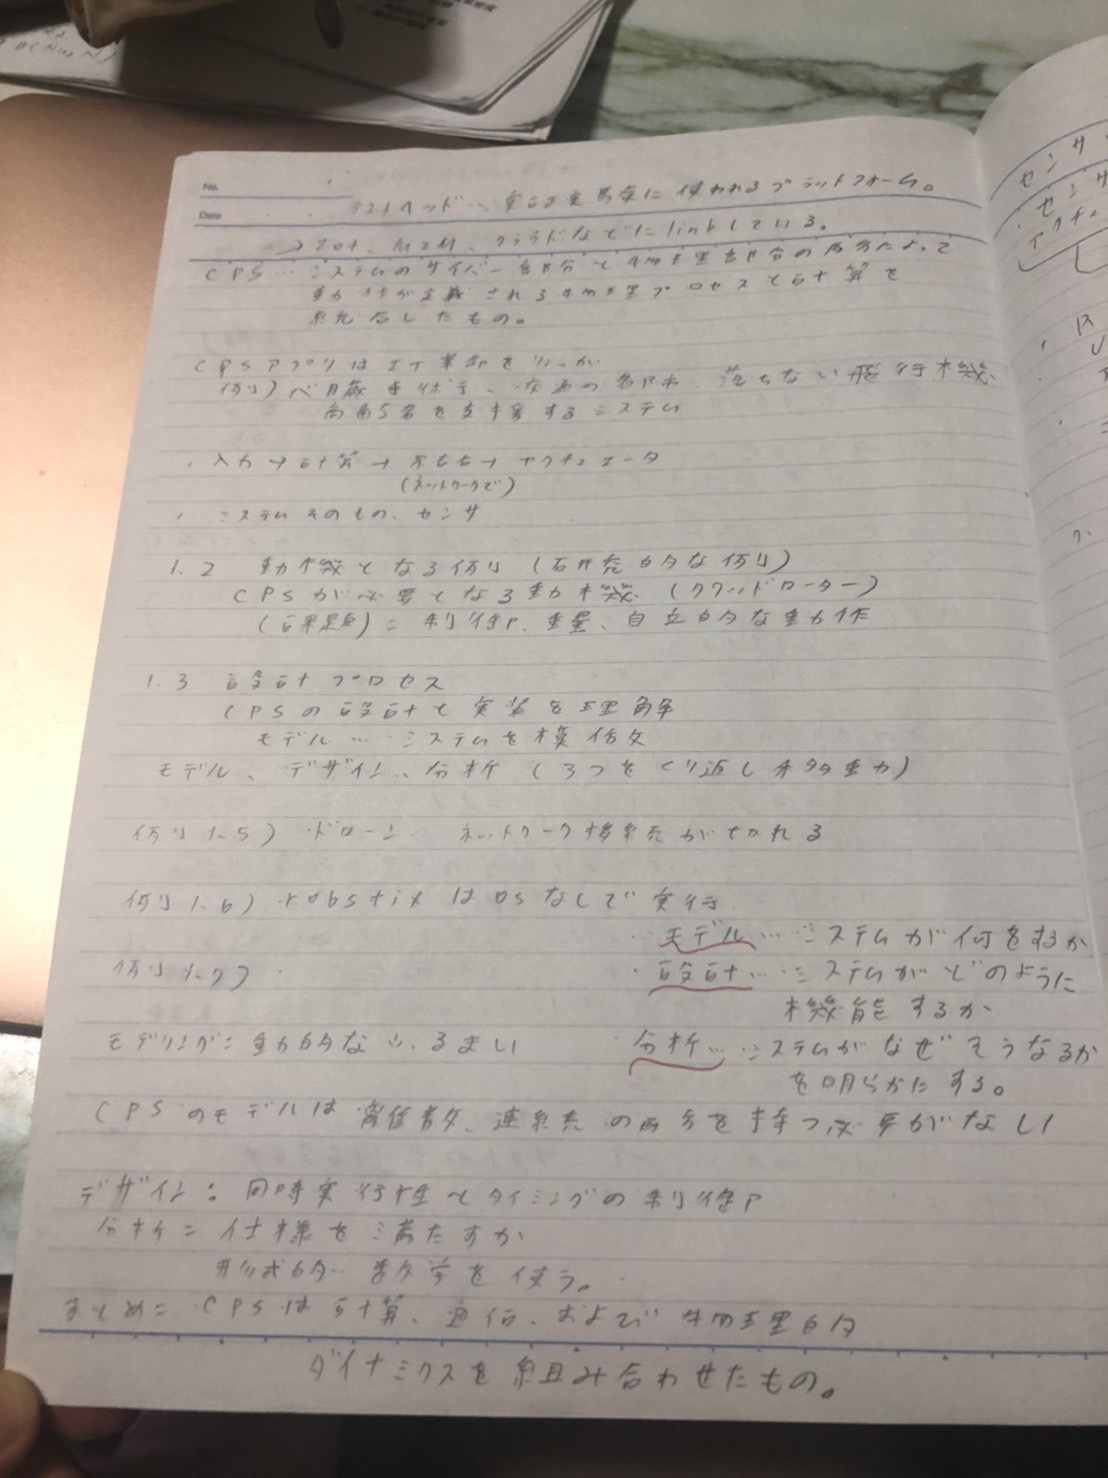 No.
Date
テストベッド… 実証実験に使われるプラットフォーム。
→IoT、M2M、クラウドなどにlinkしている。
CPS…システムのサイバー部分と物理部分の両方によって
動作が定義される物理プロセスと計算を
統合したもの。
CPSアプリはIT革命を
例) 心臓手術、交通の 落ちない飛行機、
高齢者を支援するシステム
・入力→計算→ →アクチュエータ
(ネットワークで)
・システムそのもの、センサ
1.2 動機となる例 (研究的な例)
CPSが必要となる動機 (クワッドローター)
(課題)= 制御、重量、自立的な動作
1.3 設計プロセス
CPSの設計と実装を理解
モデル…システムを模倣
モデル、デザイン、分析 (3つをくり返し移動)
例1.5) ドローン ネットワーク接続が切れる
例1.6) robstixはOSなしで実行
・モデル…システムが何をするか
例1.7)
・設計…システムがどのように
機能するか
モデリング=動的なふるまい
・分析…システムがなぜそうなるか
を明らかにする。
CPSのモデルは離散、連続の両方を持つ必要がない
デザイン:同時実行性とタイミングの制御
分析=仕様を満たすか
形式的…数学を使う。
まとめ=CPSは計算、通信、および物理的
ダイナミクスを組み合わせたもの。
センサ
センサ
アクチュ